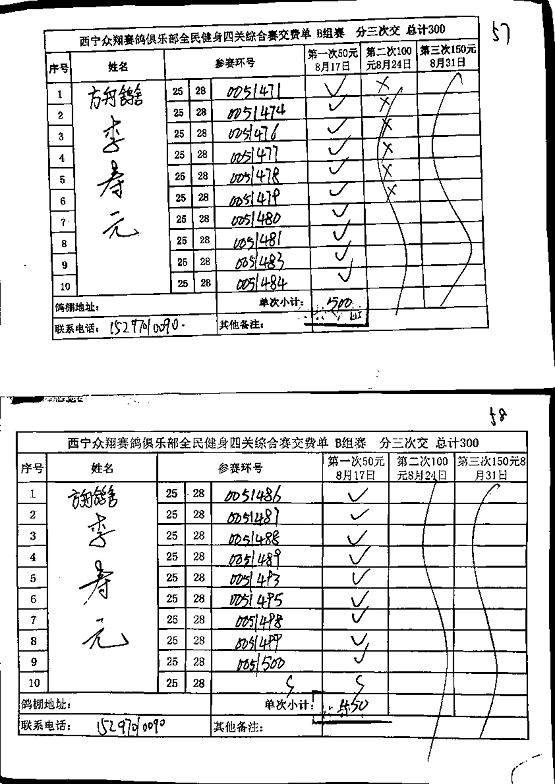 57
西宁众翔赛鸽俱乐部全民健身四关综合赛交费单 B组赛 分三次交 总计300
序号 姓名 参赛环号 第一次50元8月17日 第二次100元8月24日 第三次150元8月31日
方舟鸽舍
李寿元
1 25 28 0051471 ✓ ×
2 25 28 0051474 ✓ ×
3 25 28 0051476 ✓ ×
4 25 28 0051477 ✓ ×
5 25 28 0051478 ✓ ×
6 25 28 0051479 ✓ ×
7 25 28 0051480 ✓
8 25 28 0051481 ✓
9 25 28 0051483 ✓
10 25 28 0051484 ✓
鸽棚地址: 单次小计: 500
联系电话: 15297010090. 其他备注:
58
西宁众翔赛鸽俱乐部全民健身四关综合赛交费单 B组赛 分三次交 总计300
序号 姓名 参赛环号 第一次50元8月17日 第二次100元8月24日 第三次150元8月31日
方舟鸽舍
李寿元
1 25 28 0051486 ✓
2 25 28 0051487 ✓
3 25 28 0051488 ✓
4 25 28 0051489 ✓
5 25 28 0051493 ✓
6 25 28 0051495 ✓
7 25 28 0051498 ✓
8 25 28 0051499 ✓
9 25 28 0051500 ✓
10 25 28
鸽棚地址: 单次小计: 450
联系电话: 15297010090 其他备注: